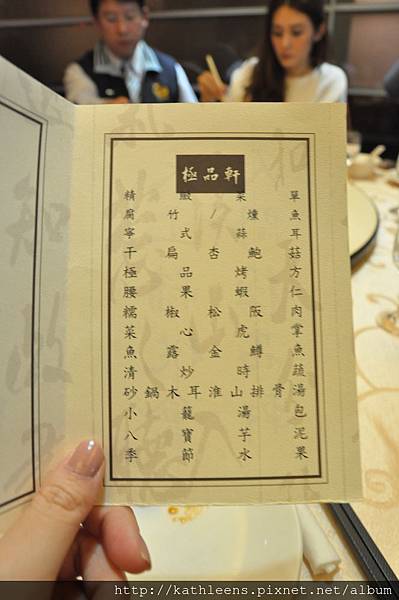 極品軒
精緻菜單
腐竹/燻魚
寧式蒜耳
干扁杏鮑菇
極品烤方
腰果蝦仁
糯椒松阪肉
菜心虎掌
魚露金鱒魚
清炒時蔬
砂鍋木耳淮山排骨湯
小籠湯包
八寶芋泥
季節水果
http://kathleens.pixnet.net/album